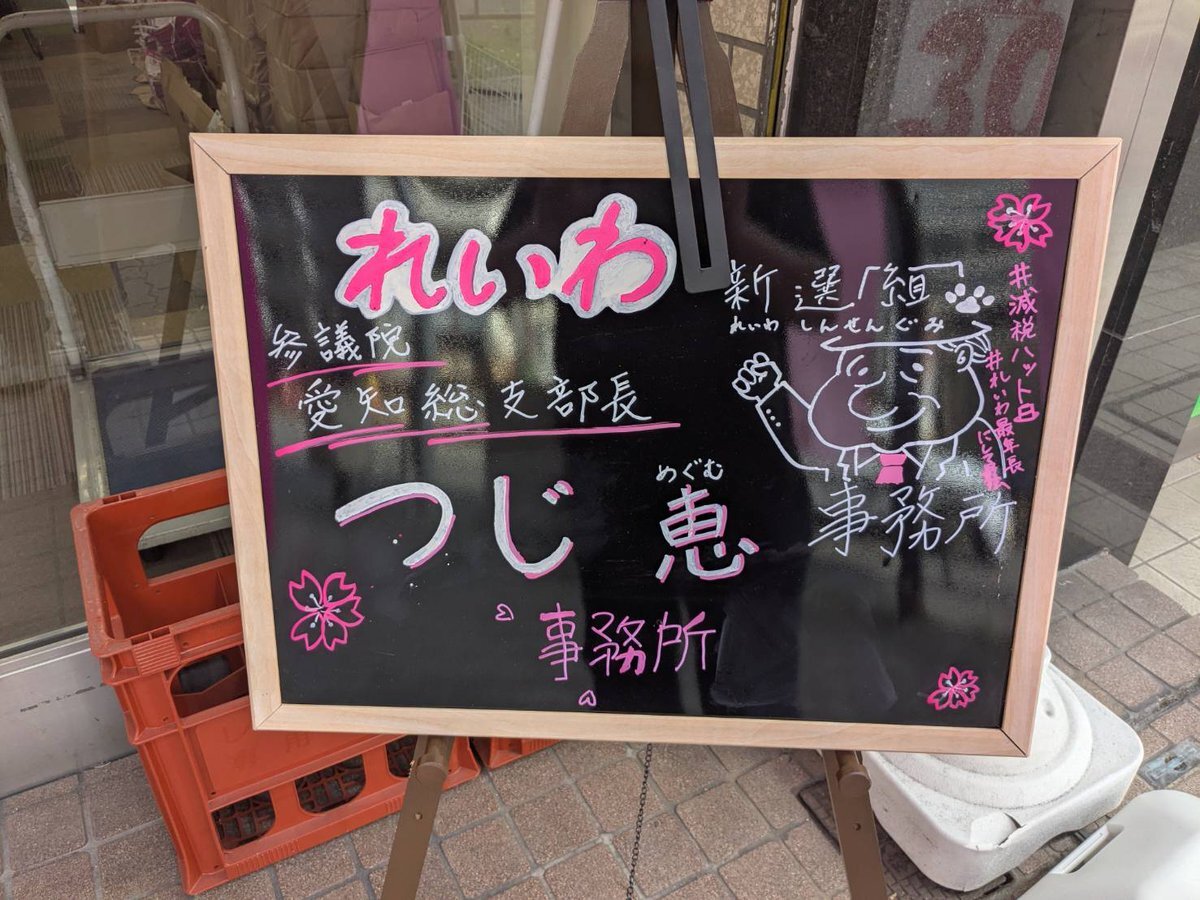 れいわ
新選組
れいわ しんせんぐみ
参議院
愛知総支部長
めぐむ
つじ 恵
事務所
事務所
#減税ハット
#れいわ最年長
30